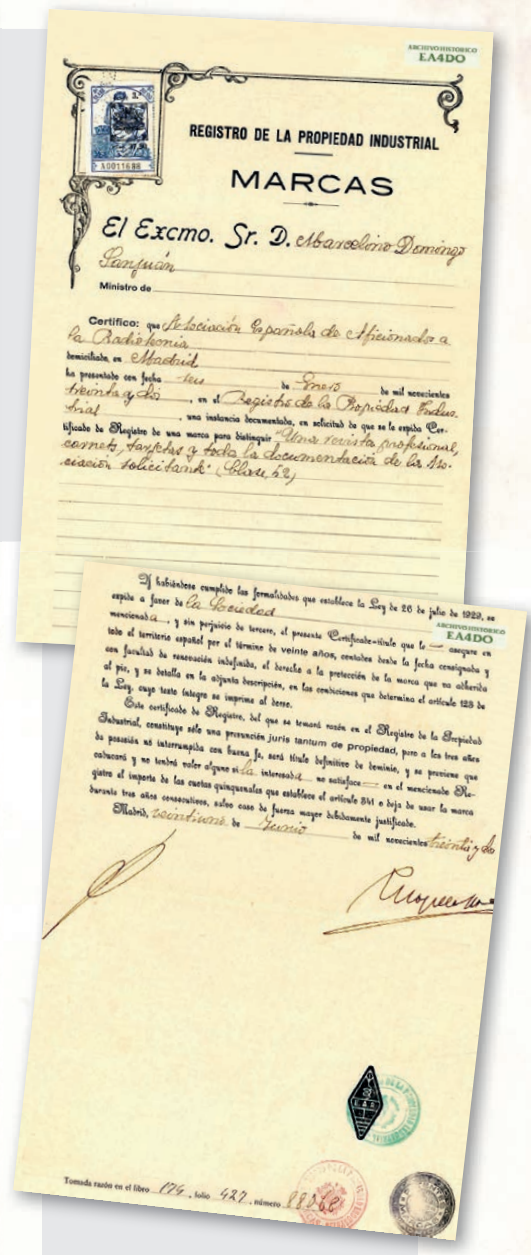 ARCHIVO HISTORICO
EA4DO
A0011688
REGISTRO DE LA PROPIEDAD INDUSTRIAL
MARCAS
El Excmo. Sr. D. Marcelino Domingo
Sanjuán
Ministro de
Certifico: que Asociación Española de Aficionados a
la Radiotecnia
domiciliada en Madrid
ha presentado con fecha seis de Enero de mil novecientos
treinta y dos, en el Registro de la Propiedad Indus-
trial, una instancia documentada, en solicitud de que se le expida Cer-
tificado de Registro de una marca para distinguir "Una revista profesional,
carnets, tarjetas y toda la documentación de la Aso-
ciación solicitante" (Clase 52)
Y habiéndose cumplido las formalidades que establece la Ley de 26 de julio de 1929, se
expide a favor de la Sociedad
ARCHIVO HISTORICO
EA4DO
mencionada, y sin perjuicio de tercero, el presente Certificado-título que le asegura en
todo el territorio español por el término de veinte años, contados desde la fecha consignada y
con facultad de renovación indefinida, el derecho a la protección de la marca que va adherida
al pie, y se detalla en la adjunta descripción, en las condiciones que determina el artículo 123 de
la Ley, cuyo texto íntegro se imprime al dorso.
Este certificado de Registro, del que se tomará razón en el Registro de la Propiedad
Industrial, constituye sólo una presunción juris tantum de propiedad, pero a los tres años
de posesión no interrumpida con buena fe, será título definitivo de dominio, y se previene que
caducará y no tendrá valor alguno si la interesada no satisface en el mencionado Re-
gistro el importe de las cuotas quinquenales que establece el artículo 341 o deja de usar la marca
durante tres años consecutivos, salvo caso de fuerza mayor debidamente justificado.
Madrid, veintiuno de Junio de mil novecientos treinta y do
Tomada razón en el libro 174, folio 427, número